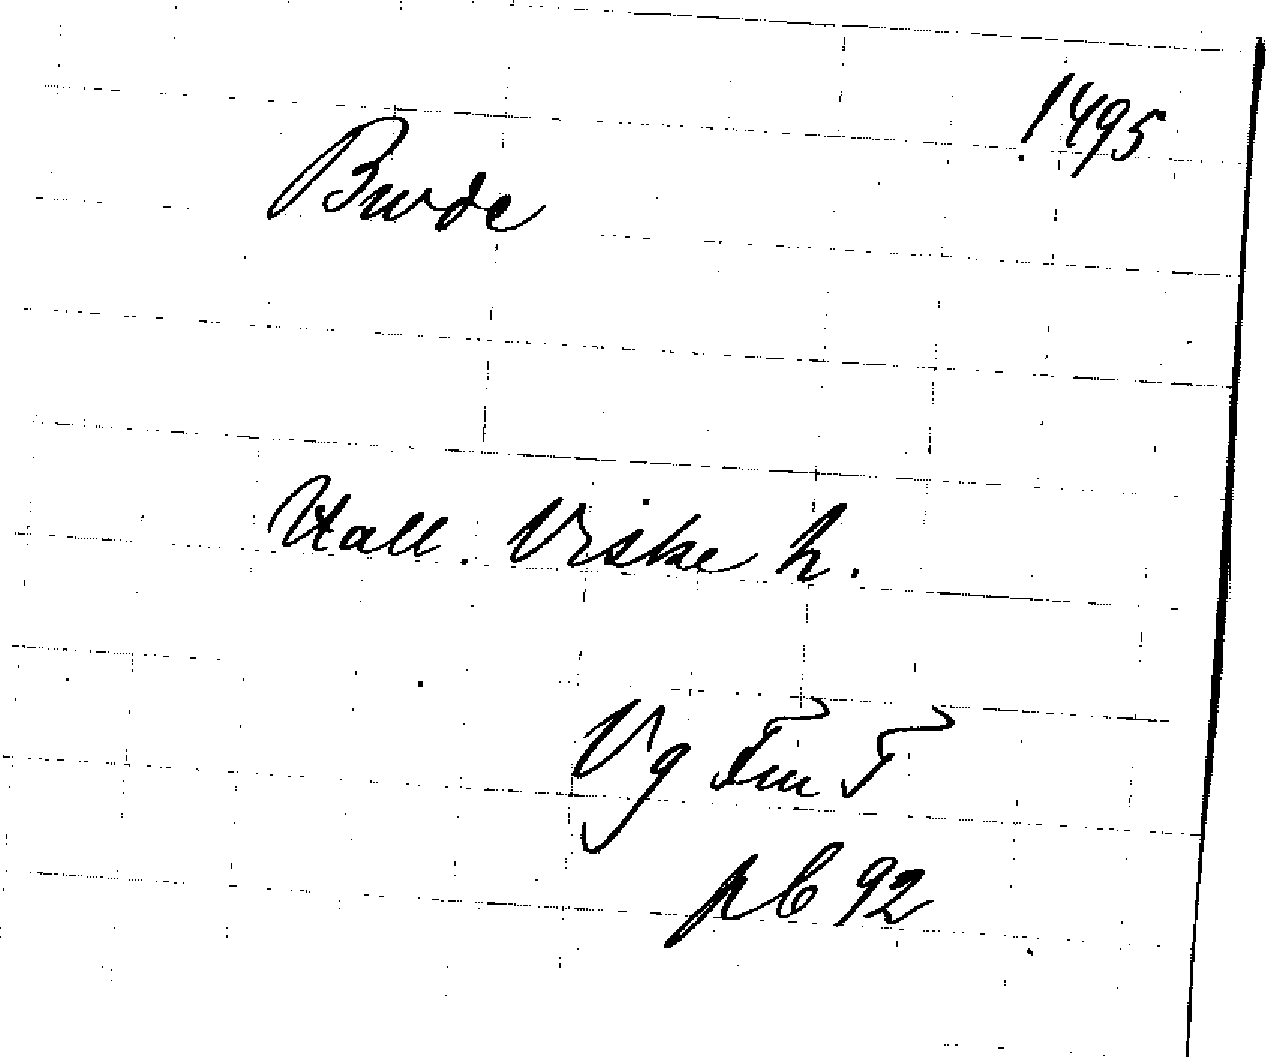 1495
Burde
Hall. Viske h.
Vg Fm T
pb 92